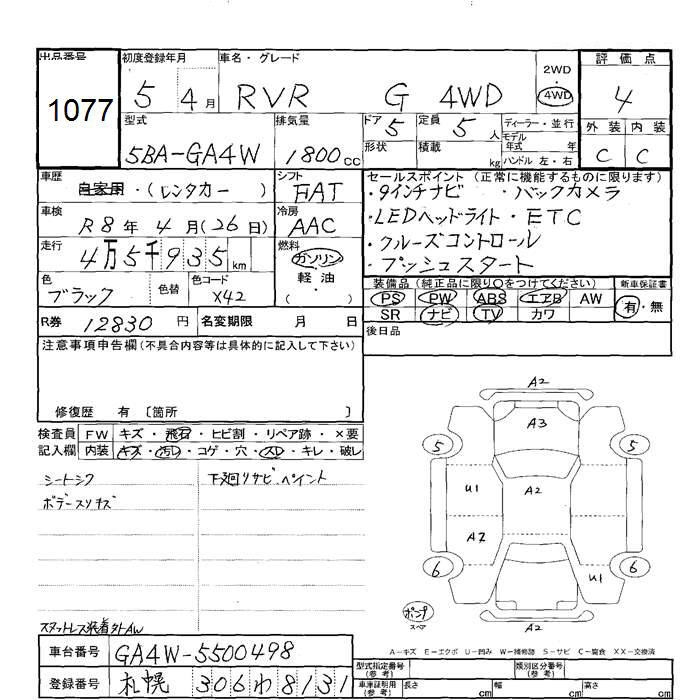 出品番号 初度登録年月 車名・グレード 2WD・4WD 評価点
1077 5 4月 RVR G 4WD 4
型式 排気量 ドア 定員 ディーラー・並行 外装 内装
5BA-GA4W 1800cc 5 5人 モデル年式 年式 C C
形状 積載 kg ハンドル 左・右
車歴 自家用・(レンタカー) シフト FAT
セールスポイント (正常に機能するものに限ります)
・9インチナビ ・バックカメラ
車検 R8年4月(26日) 冷房 AAC
・LEDヘッドライト・ETC
走行 4万5千935km 燃料 ガソリン
・クルーズコントロール
軽油・( )
・プッシュスタート
色 ブラック 色替 色コード X42
装備品 (純正品に限り○をつけてください) 新車保証書
PS PW ABS エアB AW 有・無
SR ナビ TV カワ
R券 12830円 名変期限 月 日
後日品
注意事項申告欄(不具合内容等は具体的に記入して下さい)
修復歴 有 〔箇所 〕
検査員 FW キズ・飛石・ヒビ割・リペア跡・×要
記入欄 内装 キズ・汚レ・コゲ・穴・スレ・キレ・破レ
シートシワ 下廻りサビ、ペイント
ボデースリキズ
スタットレス装着 外AW
A2
A3
5 5
U1 A2
A2
6 6
U1
ポンプ
スペア
A2
A-キズ E-エクボ U-凹み W-補修跡 S-サビ C-腐食 XX-交換済
車台番号 GA4W-5500498
型式指定番号(参考) 類別区分番号(参考)
登録番号 札幌 306 わ 8131
車庫証明用(参考) 長さ cm 幅 cm 高さ cm